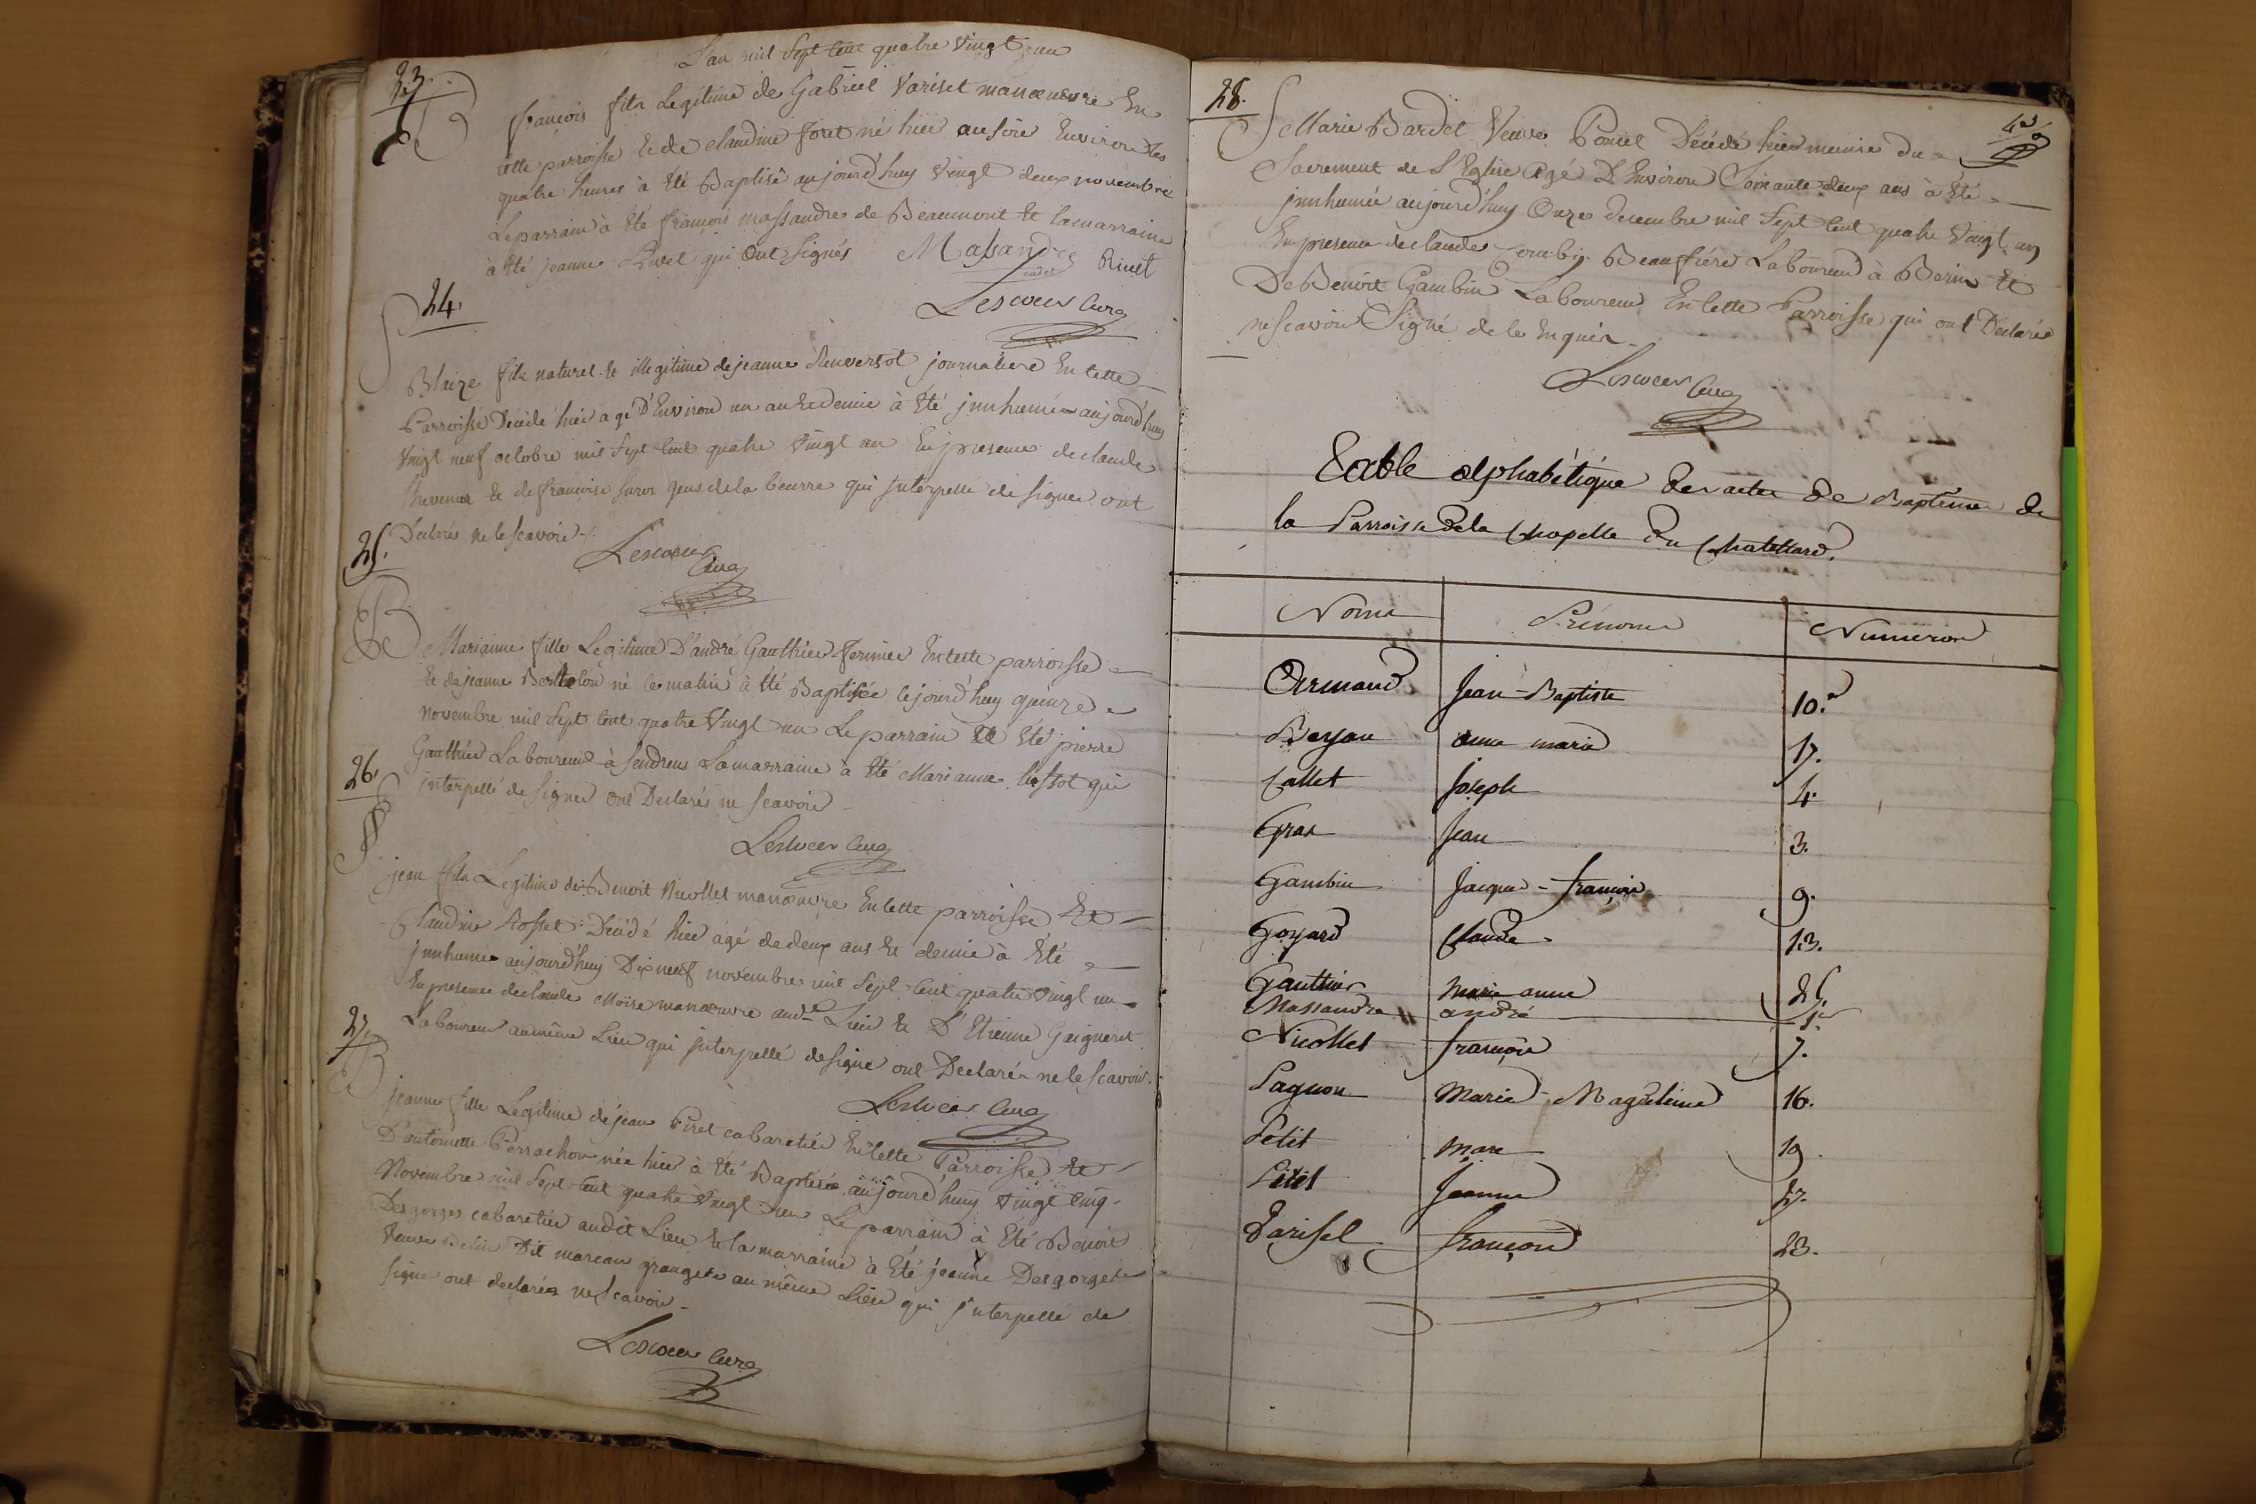 L'an mil Sept Cent quatre Vingt un
23.
B
françois fils Legitime de Gabriel Variset manœuvre En
cette parroisse Et de claudine foret né hier au soir Environ les
quatre heures à Eté Baptisé aujourd'huy Vingt deux novembre
Le parrain à Eté françois massandre de Beaumont Et la marraine
à Eté jeanne Rivet qui Ont Signés Masandre Rivet
cadet
Lescuer Curé
24
S
Blaize fils naturel Et illegitime de jeanne journaliere En cette
Parroisse Décédé hier agé D'Environ un an Et demie à Eté jnnhumé aujourd'huy
Vingt neuf octobre mil Sept Cent quatre Vingt un En presence de claude
thevenet Et de françoise gens de la qui jnterpellé de signer ont
Déclarés ne le scavoir
Lescuer
Curé
25.
B
Marianne fille Legitime D'andré Gauthier fermier En cette parroisse
Et de jeanne Berthelon né ce matin à Eté Baptisée cejourd'huy quinze
Novembre mil Sept Cent quatre Vingt un Le parrain à Eté pierre
Gauthier Laboureur à Sendrens La marraine à Eté Marianne qui
jnterpellé de Signer Ont Declarés ne Scavoir
Lescuer Curé
26.
S
jean fils Legitime de Benoit Nicollet manœuvre En cette parroisse Et
Claudine Rosset Décédé hier agé de deux ans Et demie à Eté
jnnhumé aujourd'huy Dixneuf novembre mil Sept Cent quatre Vingt un
En presence de claude Moise manœuvre aud.t Lieu Et D'Etienne Gaigneret
Laboureur au même Lieu qui jnterpellé de signer ont Declarés ne le Scavoir.
Lescuer Curé
27.
B
jeanne fille Legitime de jean Pitet cabaretier En cette Parroisse Et
D'antoinette Perrachon née hier à Eté Baptisée aujourd'huy Vingt Cinq
Novembre mil Sept Cent quatre Vingt un Le parrain à Eté Benoit
Desgorges cabaretier audit Lieu Et la marraine à Eté jeanne Desgorges
Veuve Dit moreau granger au même Lieu qui jnterpellé de
signer ont declarés ne Scavoir
Lescuer Curé
28.
S
Marie Bardet Veuve Poncet Décédé hier munie du
Sacrement de L'Eglise agé D'Environ Soixante deux ans à Eté
jnnhumée aujourd'huy Onze decembre mil Sept Cent quatre Vingt un
En presence de claude Beaufrére Laboureur à Et
De Benoit Gambin Laboureur En Cette Parroisse qui ont Declarés
ne scavoir Signé de ce Enquis
Lescuer
Curé
Table alphabétique des actes de Baptême de
la Parroisse de la Chapelle du Chatelard.
Noms Prénoms Numeros
Armand Jean-Baptiste 10.
Boyau anne marie 17.
Callet Joseph 4.
Gras Jean 3.
Gambin Jacques-François 9.
Goyard Claude 13.
Gauthier Marie anne 25.
Massandre andré 1.
Nicollet François 7.
Pagnon Marie-Magdeleine 16.
Petit Marc 19.
Pitet Jeanne 27.
Variset François 23.